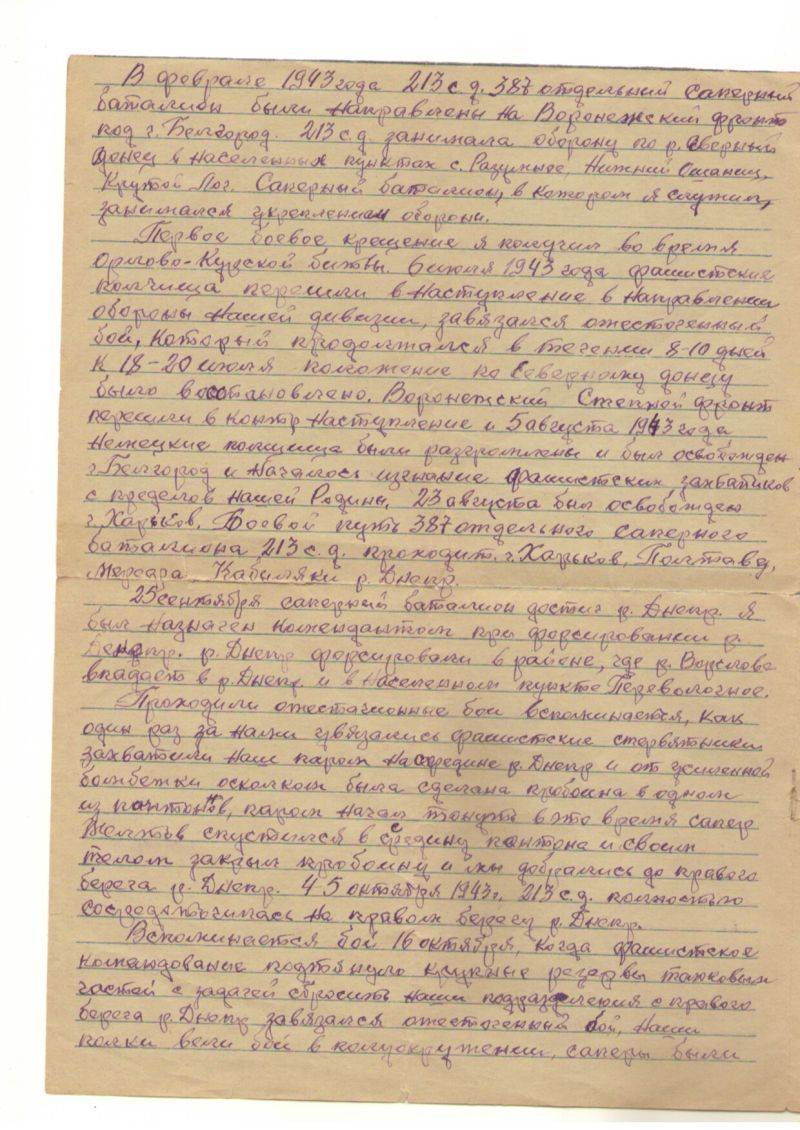 В феврале 1943 года 213 с.д. 387 отдельный саперный
баталион были направлены на Воронежский фронт
под г. Белгород. 213 с.д. занимала оборону по р. Сверный
Донец в населенных пунктах с. Разумное, Нижний Ольшанец,
Крутой Лог. Саперный баталион, в котором я служил,
занимался укреплением оборони.
Первое боевое крещение я получил во время
Орлово-Курской битвы. 6 июля 1943 года фашистские
полчища перешли в наступление в направлении
обороны нашей дивизии, завязался ожесточенный
бой, который продолжался в течении 8-10 дней
К 18-20 июля положение по Северному донцу
было востановлено. Воронежский Степной фронт
перешли в контр наступление и 5 августа 1943 года
немецкие полщища были разгромлены и был освобожден
г. Белгород и началось изгнание фашистских захватиков
с пределов нашей Родины. 23 августа был освобожден
г. Харьков. Боевой путь 387 отдельного саперного
баталиона 213 с.д. проходит. г. Харьков, Полтава,
Мерефа, Кабиляки р. Днепр.
25 сентября саперный баталион достиг р. Днепр. я
был назначен комендантом при форсировании р.
Денепр. р. Днепр форсировали в районе, где р. Ворслова
впадает в р. Днепр и в населенном пункте Переволочное.
Проходили ожестачонные бои вспоминается, как
один раз за нами увязались фашистские стервятники
захватили наш паром на середине р. Днепр и от усиленной
бомбежки осколком была сделана пробоина в одном
из понтонов, паром начал тонуть в это время сапер
Желтов спустился в средину понтона и своим
телом закрыл пробоину и мы добрались до правого
берега р. Днепр. 4 5 октября 1943 г. 213 с.д. полностью
сосредоточилась на правом берегу р. Днепр.
Вспоминается бой 16 октября, когда фашистское
командование подтянуло крупные резервы танковых
частей с задачей сбросить наши подразделения с правого
берега р. Днепр завязался ожесточеный бой, наши
полки вели бой в полуокружении, саперы были